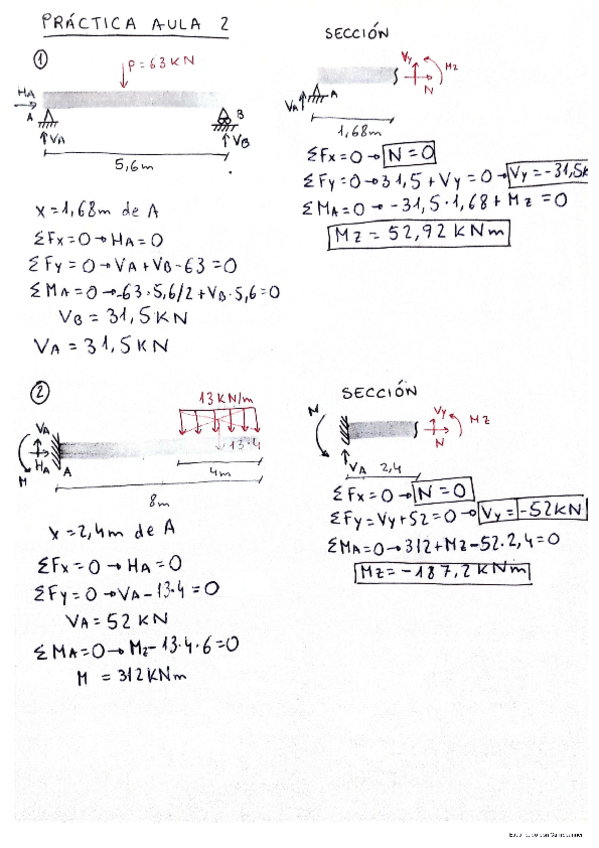 PRÁCTICA AULA 2
①
P = 63 KN
HA
A
B
VA
VB
5,6m
x = 1,68m de A
ΣFx = 0 → HA = 0
ΣFy = 0 → VA + VB - 63 = 0
ΣMA = 0 → -63·5,6/2 + VB·5,6 = 0
VB = 31,5 KN
VA = 31,5 KN
SECCIÓN
Vy
Mz
N
A
VA
1,68m
ΣFx = 0 → N = 0
ΣFy = 0 → 31,5 + Vy = 0 → Vy = -31,5K
ΣMA = 0 → -31,5·1,68 + Mz = 0
Mz = 52,92 KNm
②
13 KN/m
VA
HA
A
M
13·4
4m
8m
x = 2,4m de A
ΣFx = 0 → HA = 0
ΣFy = 0 → VA - 13·4 = 0
VA = 52 KN
ΣMA = 0 → Mz - 13·4·6 = 0
M = 312 KNm
SECCIÓN
M
Vy
Mz
N
VA
2,4
ΣFx = 0 → N = 0
ΣFy = Vy + 52 = 0 → Vy = -52KN
ΣMA = 0 → 312 + Mz - 52·2,4 = 0
Mz = -187,2 KNm